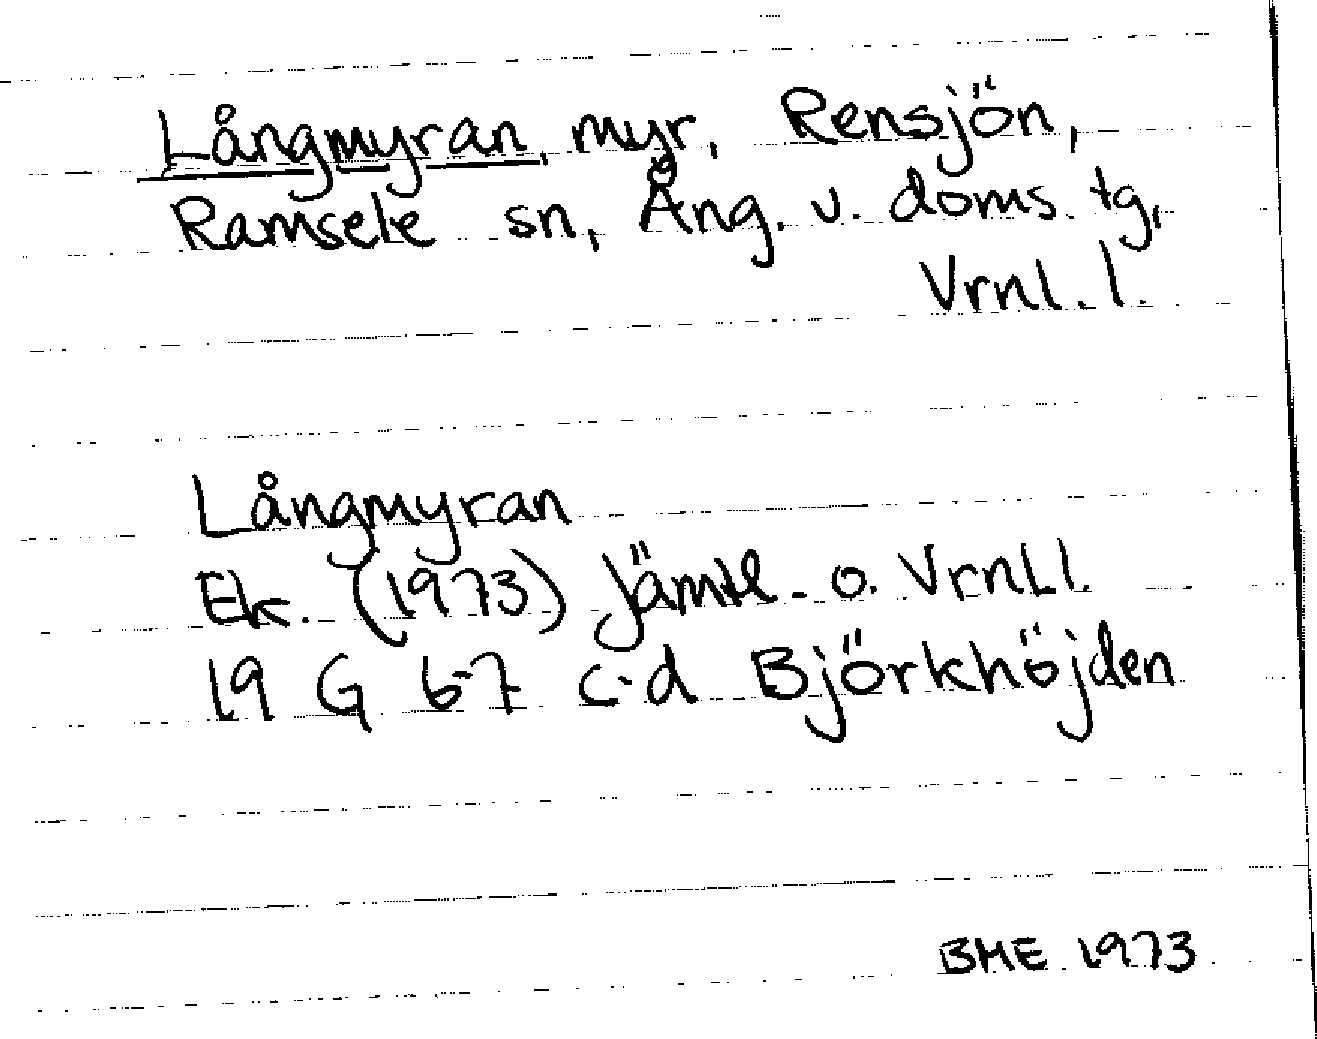 Långmyran, myr, Rensjön,
Ramsele sn, Ång. v. doms. tg,
Vrnl. l.
Långmyran
Ek. (1973) Jämtl. o. Vrnl l.
19 G 6-7 c-d Björkhöjden
BME 1973